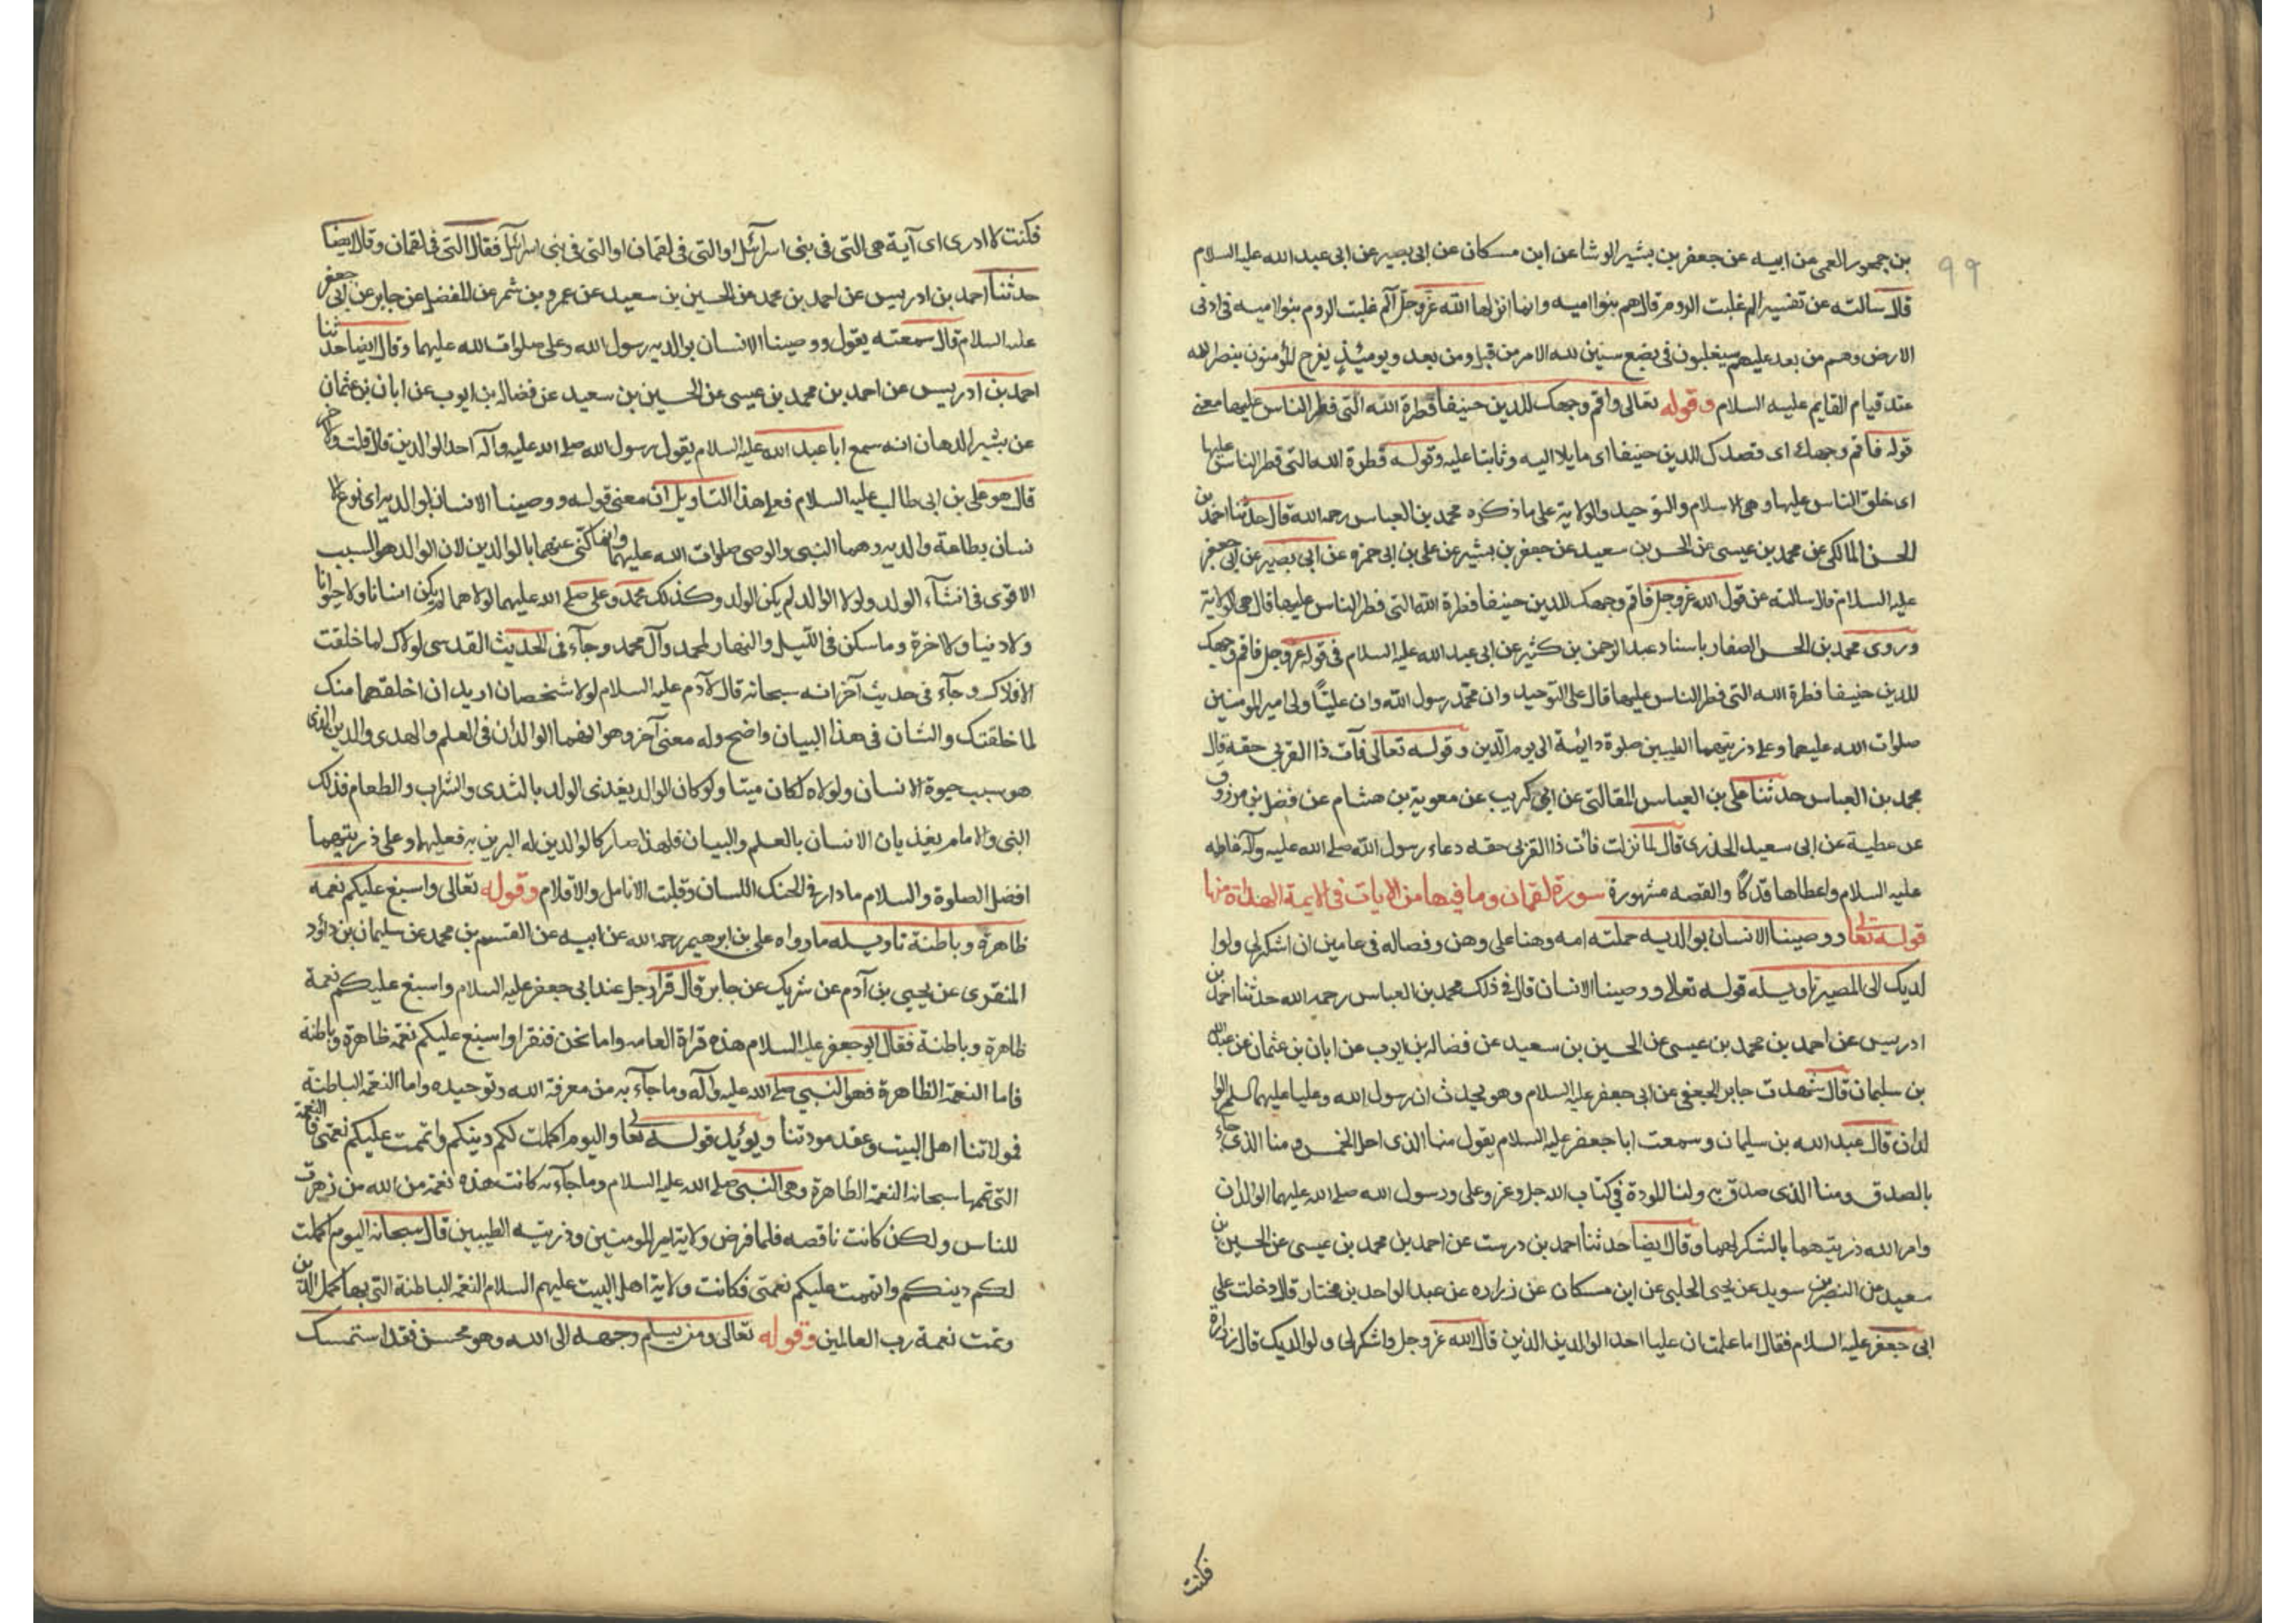 ٩٩
بن جمهور العمى عن ابيه عن جعفر بن بشير الوشا عن ابن مسكان عن ابى بصير عن ابى عبد الله عليه السلام
قال سالته عن تفسير الم غلبت الروم قال هم بنوا اميه وانما انزلها الله عز وجل الم غلبت الروم بنوا اميه فى ادنى
الارض وهم من بعد غلبهم سيغلبون فى بضع سنين لله الامر من قبل ومن بعد ويومئذ يفرح المؤمنون بنصر الله
عند قيام القايم عليه السلام وقوله تعالى واقم وجهك للدين حنيفا فطرة الله التى فطر الناس عليها معنى
قوله فاقم وجهك اى قصدك للدين حنيفا اى مايلا اليه وثابتا عليه وقوله فطرة الله التى فطر الناس عليها
اى خلق الناس عليها وهى الاسلام والتوحيد والولاية على ما ذكره محمد بن العباس رحمه الله قال حدثنا احمد بن
الحسن المالكى عن محمد بن عيسى عن الحسن بن سعيد عن جعفر بن بشير عن على بن ابى حمزه عن ابى بصير عن ابى جعفر
عليه السلام قال سالته عن قول الله عز وجل فاقم وجهك للدين حنيفا فطرة الله التى فطر الناس عليها قال هى الولاية
وروى محمد بن الحسن الصفار باسناد عبد الرحمن بن كثير عن ابى عبد الله عليه السلام فى قوله عز وجل فاقم وجهك
للدين حنيفا فطرة الله التى فطر الناس عليها قال على التوحيد وان محمد رسول الله وان عليًا ولى امير المومنين
صلوات الله عليهما وعلى ذريتهما الطيبين صلوة دائمة الى يوم الدين وقوله تعالى فآت ذا القربى حقه قال
محمد بن العباس حدثنا على بن العباس المقالتى عن ابى كريب عن معوية بن هشام عن فضل بن مرزوق
عن عطية عن ابى سعيد الخدرى قال لما نزلت فات ذا القربى حقه دعاء رسول الله صلى الله عليه وآله فاطمه
عليه السلام واعطاها فدكًا والقصه مشهورة سورة لقمان وما فيها من الايات فى الايمة الهداة منها
قوله تعالى ووصينا الانسان بوالديه حملته امه وهنا على وهن وفصاله فى عامين ان اشكر لى ولوا
لديك الى المصير تاويله قوله تعالى ووصينا الانسان قال فى ذلك محمد بن العباس رحمه الله حدثنا احمد بن
ادريس عن احمد بن محمد بن عيسى عن الحسين بن سعيد عن فضاله بن ايوب عن ابان بن عثمان عن عبد الله
بن سليمان قال شهدت جابر الجعفى عن ابى جعفر عليه السلام وهو يحدث ان رسول الله وعليا عليهما السلم الوا
لدان قال عبد الله بن سليمان وسمعت ابا جعفر عليه السلام يقول منا الذى احل الخمس ومنا الذى جاء
بالصدق ومنا الذى صدق به ولنا المودة فى كتاب الله جل وعز وعلى ورسول الله صلى الله عليهما الوالدان
وامر الله ذريتهما بالشكر لهما وقال ايضا حدثنا احمد بن درست عن احمد بن محمد بن عيسى عن الحسين بن
سعيد عن النضر بن سويد عن يحيى الحلبى عن ابن مسكان عن زراره عن عبد الواحد بن مختار قال دخلت على
ابى جعفر عليه السلام فقال اما علمت ان عليا احد الوالدين الذين قال الله عز وجل واشكر لى ولوالديك قال زرارة
فكنت
فكنت لا ادرى اى آية هى التى فى بنى اسرآئيل او التى فى لقمان او التى فى بنى اسرآئيل فقال التى فى لقمان وقال ايضا
حدثنا احمد بن ادريس عن احمد بن محمد عن الحسين بن سعيد عن عمرو بن شمر عن المفضل عن جابر عن ابى جعفر
عليه السلام قال سمعته يقول ووصينا الانسان بوالديه رسول الله وعلى صلوات الله عليهما وقال ايضا حدثنا
احمد بن ادريس عن احمد بن محمد بن عيسى عن الحسين بن سعيد عن فضاله بن ايوب عن ابان بن عثمان
عن بشير الدهان انه سمع ابا عبد الله عليه السلام يقول رسول الله صلى الله عليه وآله احد الوالدين قال قلت والآخر
قال هو على بن ابى طالب عليه السلام فعلى هذا التاويل ان معنى قوله ووصينا الانسان بوالديه اى نوع الا
نسان بطاعة والديه وهما النبى والوصى صلوات الله عليهما وانما كنى عنهما بالوالدين لان الوالد هو السبب
الاقوى فى انشآء الولد ولولا الوالد لم يكن الولد وكذلك لولا محمد وعلى صلى الله عليهما لولاهما لم يكن انسانا ولا حيوانا
ولا دنيا ولا اخرة وما سكن فى الليل والنهار لمحمد وآل محمد وجآء فى الحديث القدسى لولاك لما خلقت
الافلاك وجآء فى حديث آخر انه سبحانه قال لآدم عليه السلام لولا شخصان اريد ان اخلقهما منك
لما خلقتك والشان فى هذا البيان واضح وله معنى آخر وهو انهما الوالدان فى العلم والهدى والدين الذى
هو سبب حيوة الانسان ولولاه لكان ميتا ولو كان الوالد يغذى الولد بالثدى والشراب والطعام فذلك
النبى والامام يغذيان الانسان بالعلم والبيان فلهذا صار كالوالدين له البرين به فعليهما وعلى ذريتهما
افضل الصلوة والسلام ما دار فى الحنك اللسان وقبلت الانامل والاقلام وقوله تعالى واسبغ عليكم نعمه
ظاهرة وباطنة تاويله ما رواه على بن ابرهيم رحمه الله عن ابيه عن القسم بن محمد عن سليمان بن داؤد
المنقرى عن يحيى بن آدم عن شريك عن جابر قال قرا رجل عند ابى جعفر عليه السلام واسبغ عليكم نعمة
ظاهرة وباطنة فقال ابو جعفر عليه السلام هذه قراة العامه واما نحن فنقرا واسبغ عليكم نعمة ظاهرة وباطنة
فاما النعمة الظاهرة فهو النبى صلى الله عليه وآله وما جآء به من معرفة الله وتوحيده واما النعمة الباطنة
فمولاتنا اهل البيت وعقد مودتنا ويؤيد قوله تعالى واليوم اكملت لكم دينكم واتممت عليكم نعمتى فالنعمة
التى تمها سبحانه النعمة الظاهرة وهى النبى صلى الله عليه السلام وما جآء به كانت هذه نعمة من الله من زهرت
للناس ولكن كانت ناقصه فلما فرض ولاية امير المومنين وذريته الطيبين قال سبحانه اليوم اكملت
لكم دينكم واتممت عليكم نعمتى فكانت ولاية اهل البيت عليهم السلام النعمة الباطنة التى بها كمل الدين
وتمت نعمة رب العالمين وقوله تعالى ومن يسلم وجهه الى الله وهو محسن فقد استمسك